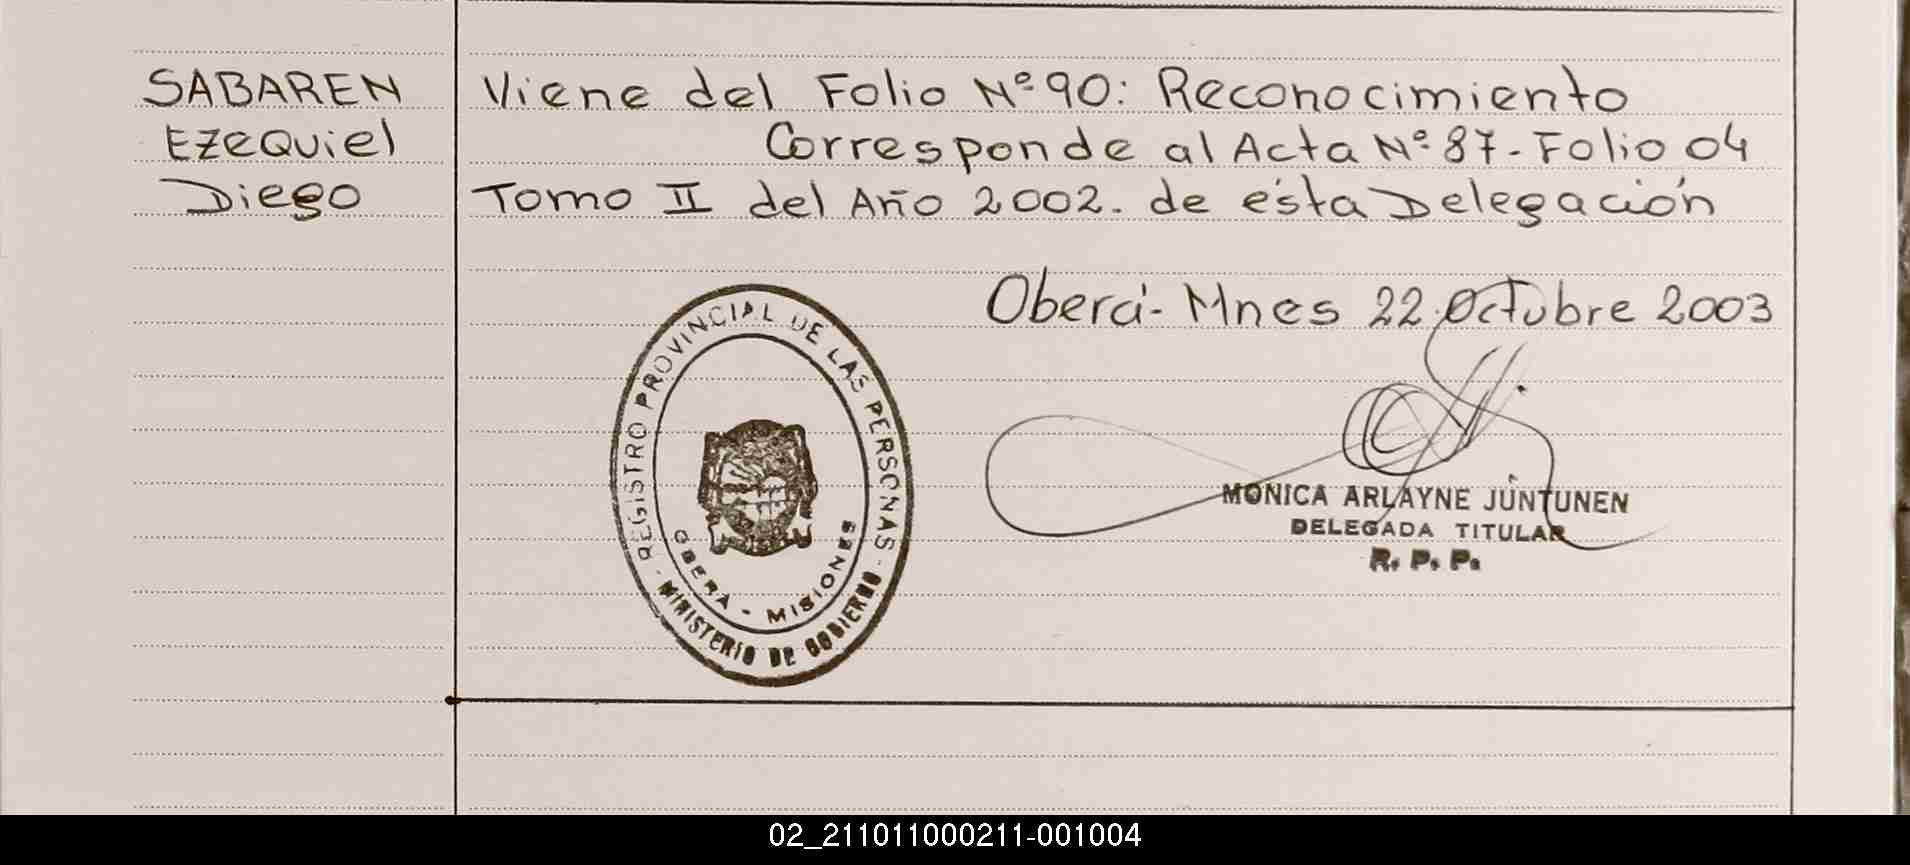 SABAREN
EZEQUIEL
Diego
Viene del Folio Nº 90: Reconocimiento
Corresponde al Acta Nº 87 - Folio 04
Tomo II del Año 2002. de ésta Delegación
Oberá - Mnes 22 Octubre 2003
REGISTRO PROVINCIAL DE LAS PERSONAS
- MINISTERIO DE GOBIERNO -
OBERA - MISIONES
MONICA ARLAYNE JUNTUNEN
DELEGADA TITULAR
R. P. P.
02_211011000211-001004